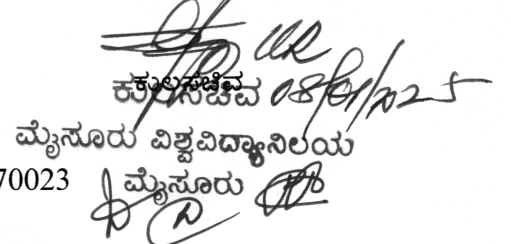 ಕುಲಸಚಿವ
ಕುಲಸಚಿವ 08/01/2025
ಮೈಸೂರು ವಿಶ್ವವಿದ್ಯಾನಿಲಯ
70023 ಮೈಸೂರು